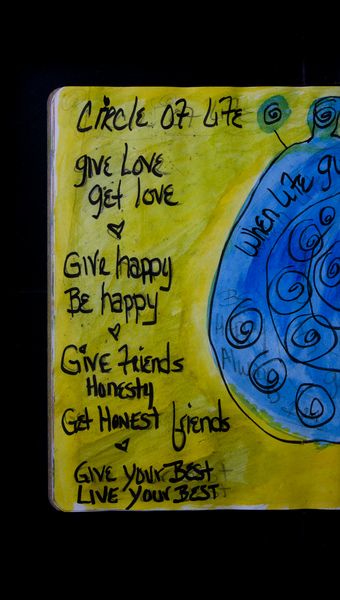 Circle Of Life
give Love
get love
Give happy
Be happy
Give Friends
Honesty
Get HONEST friends
GIVE YOUR BEST
LIVE YOUR BEST
When life